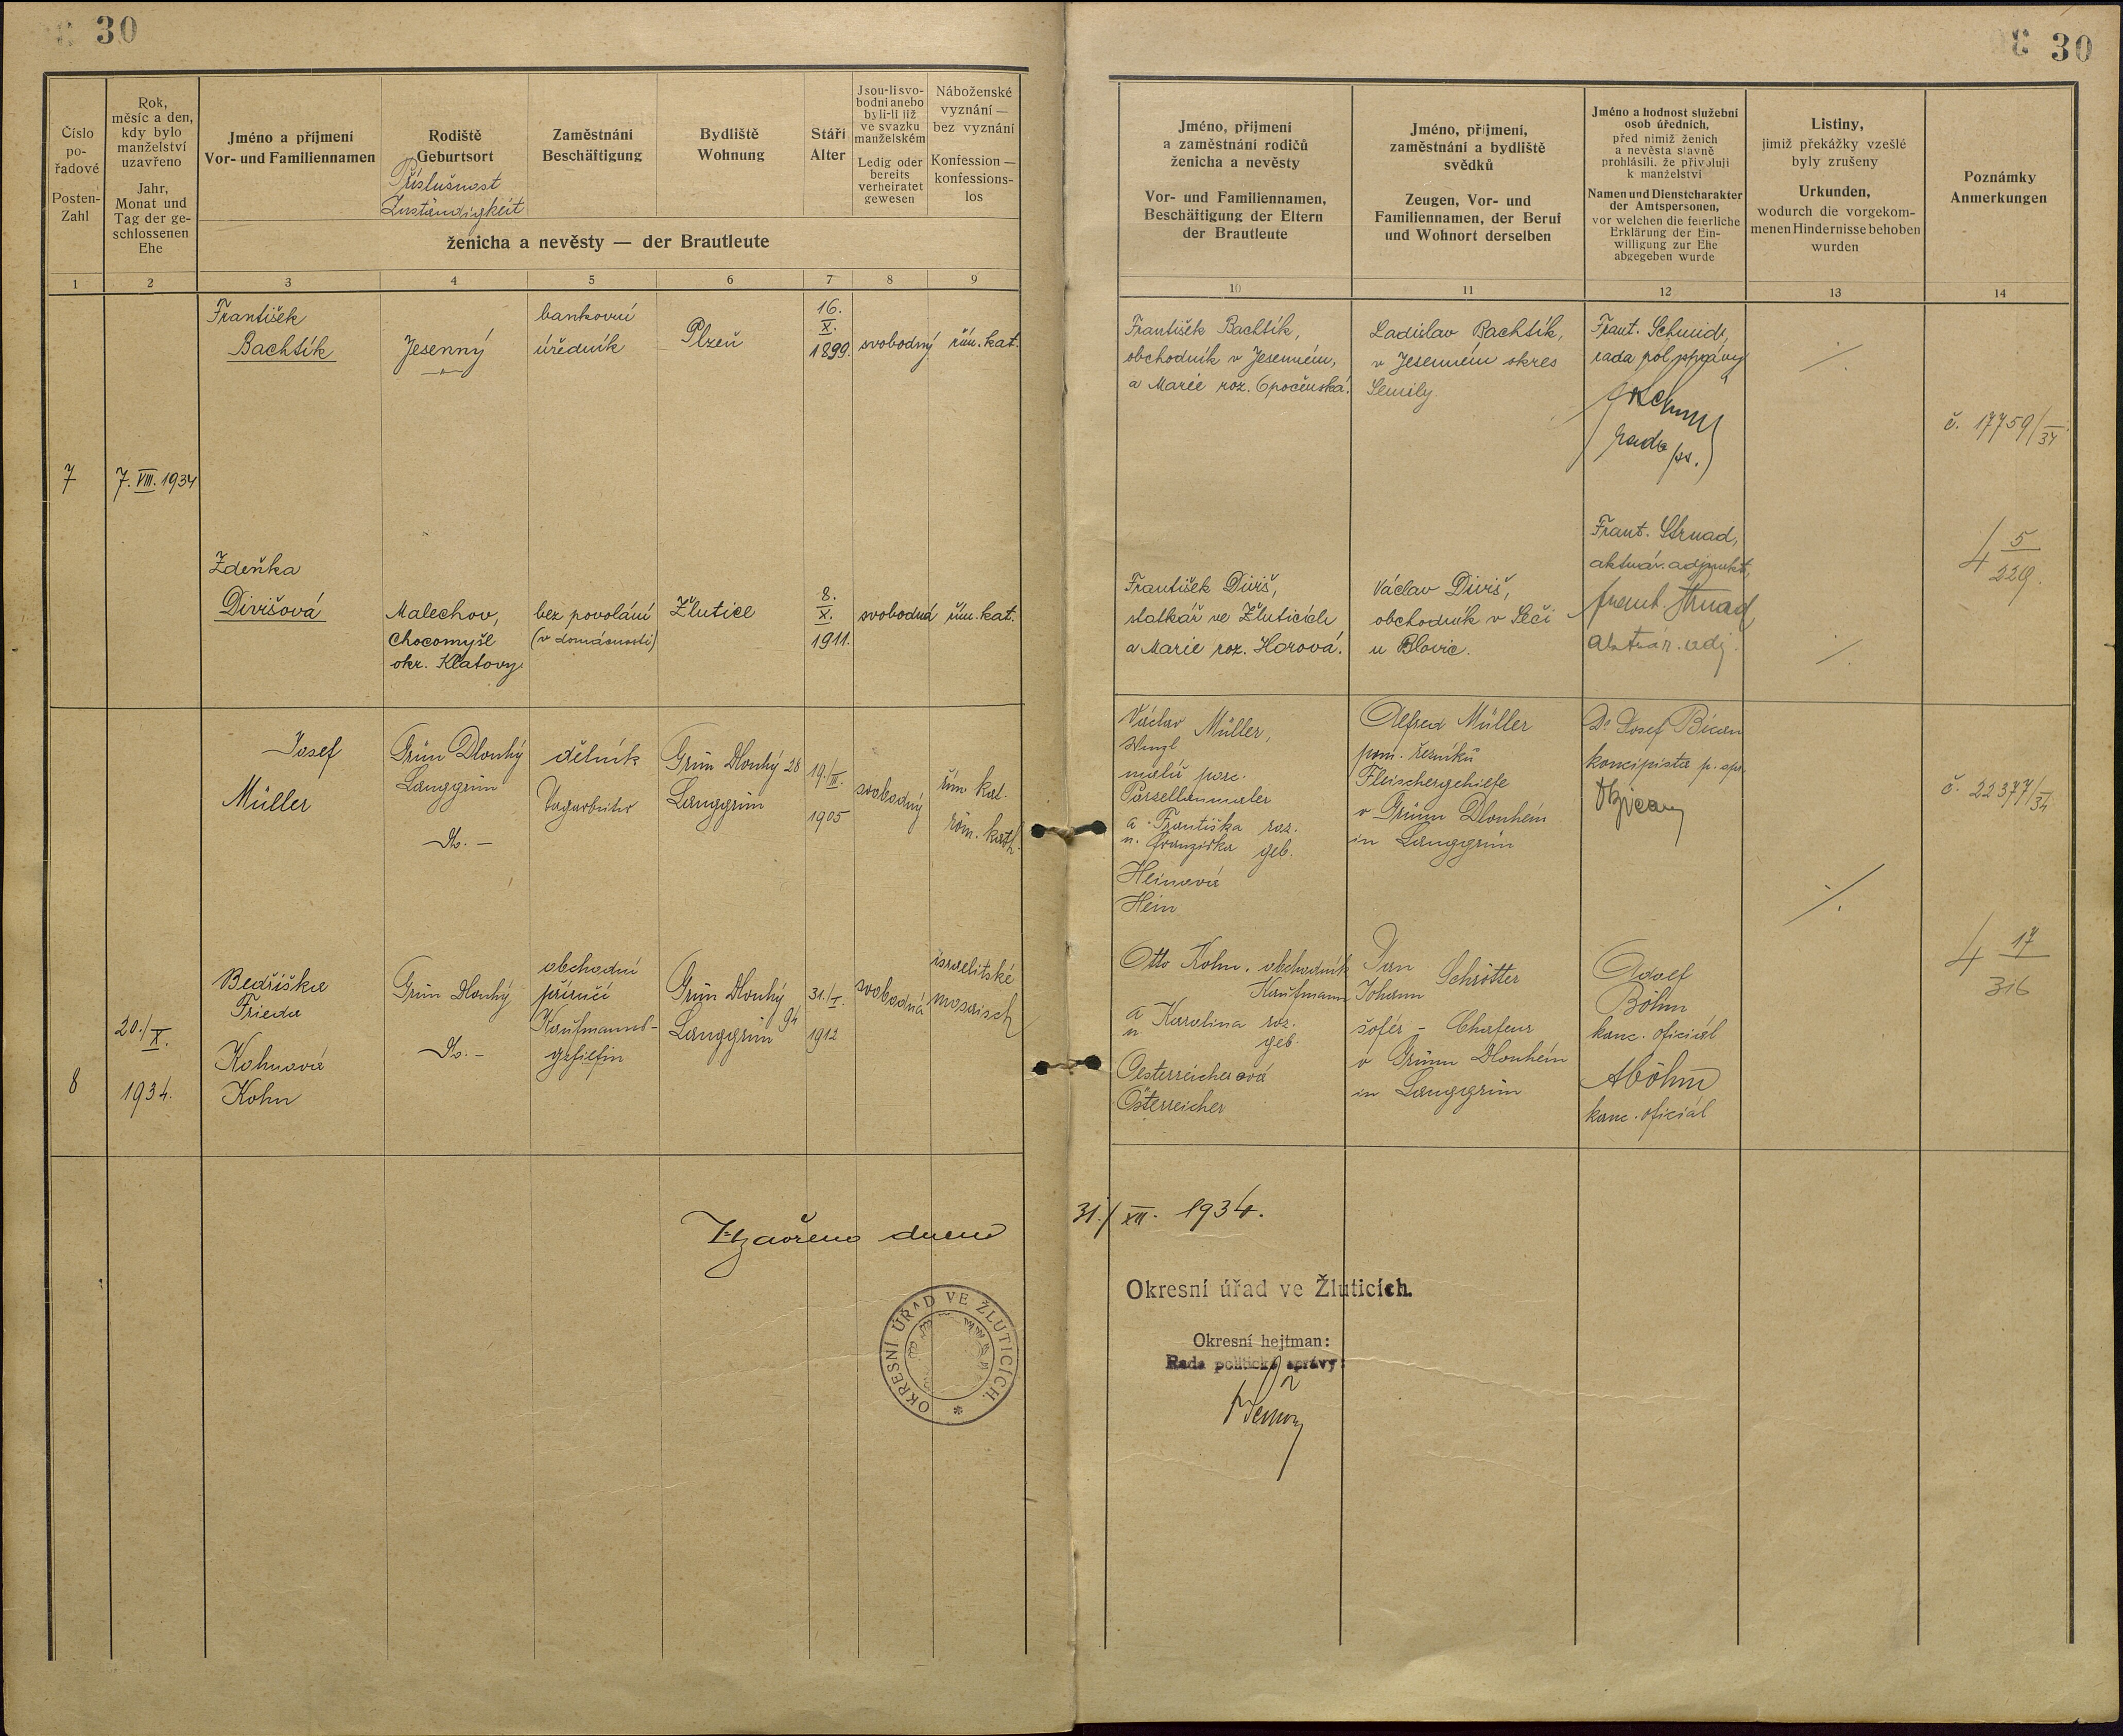 30
30
Číslo
po-
řadové
Posten-
Zahl
Rok,
měsíc a den,
kdy bylo
manželství
uzavřeno
Jahr,
Monat und
Tag der ge-
schlossenen
Ehe
Jméno a příjmení
Vor- und Familiennamen
Rodiště
Geburtsort
Příslušnost
Zuständigkeit
Zaměstnání
Beschäftigung
Bydliště
Wohnung
Stáří
Alter
Jsou-li svo-
bodni anebo
byli-li již
ve svazku
manželském
Ledig oder
bereits
verheiratet
gewesen
Náboženské
vyznání —
bez vyznání
Konfession —
konfessions-
los
ženicha a nevěsty — der Brautleute
Jméno, příjmení
a zaměstnání rodičů
ženicha a nevěsty
Vor- und Familiennamen,
Beschäftigung der Eltern
der Brautleute
Jméno, příjmení,
zaměstnání a bydliště
svědků
Zeugen, Vor- und
Familiennamen, der Beruf
und Wohnort derselben
Jméno a hodnost služební
osob úředních,
před nimiž ženich
a nevěsta slavně
prohlásili, že přivolují
k manželství
Namen und Dienstcharakter
der Amtspersonen,
vor welchen die feierliche
Erklärung der Ein-
willigung zur Ehe
abgegeben wurde
Listiny,
jimiž překážky vzešlé
byly zrušeny
Urkunden,
wodurch die vorgekom-
menen Hindernisse behoben
wurden
Poznámky
Anmerkungen
1 2 3 4 5 6 7 8 9 10 11 12 13 14
7
7. VIII. 1934
František
Bachtík
Jesenný
bankovní
úředník
Plzeň
16.
X.
1899.
svobodný
řím. kat.
František Bachtík,
obchodník v Jesenném,
a Marie roz. Opočenská.
Ladislav Bachtík,
v Jesenném okres
Semily
Frant. Schmidt,
rada pol. správy
rada
č. 17759/34
Zdeňka
Divišová
Malechov,
Chocomyšl
okr. Klatovy
bez povolání
(v domácnosti)
Žlutice
8.
X.
1911.
svobodná
řím. kat.
František Diviš,
statkář ve Žluticích
a Marie roz. Horová.
Václav Diviš,
obchodník v Seči
u Blovic.
Frant. Strnad,
aktuár. adjunkt,
frant. Strnad
aktuár. adj.
4 5
229.
8
20./X.
1934.
Josef
Müller
Grün Dlouhý
Langgrün
Do. -
dělník
Tagarbeiter
Grün Dlouhý 28
Langgrün
19./III.
1905
svobodný
řím kat.
röm. kath
Václav Müller,
Wenzl
malíř porc.
Porzellanmaler
a Františka roz.
u. Franziska geb.
Heinová
Hein
Alfred Müller
pom. řezníků
Fleischergehilfe
v Grünu Dlouhém
in Langgrün
Dr Josef Bican
koncipista p. spr.
č. 22377/34
Bedřiška
Frieda
Kohnová
Kohn
Grün Dlouhý
Do. -
obchodní
příručí
Kaufmanns-
gehilfin
Grün Dlouhý
Langgrün 94
31./I.
1912
svobodná
israelitské
mosaisch
Otto Kohn, obchodník
Kaufmann
a Karolina roz.
u geb.
Oesterreicherová
Österreicher
Jan Schrötter
Johann
šofér - Chafeur
v Grünu Dlouhém
in Langgrün
Adolf
Böhm
kanc. oficiál
ABöhm
kanc. oficiál
4 17
316
Uzavřeno dnem 31./XII. 1934.
OKRESNÍ ÚŘAD VE ŽLUTICÍCH.
Okresní úřad ve Žluticích.
Okresní hejtman:
Rada politické správy: